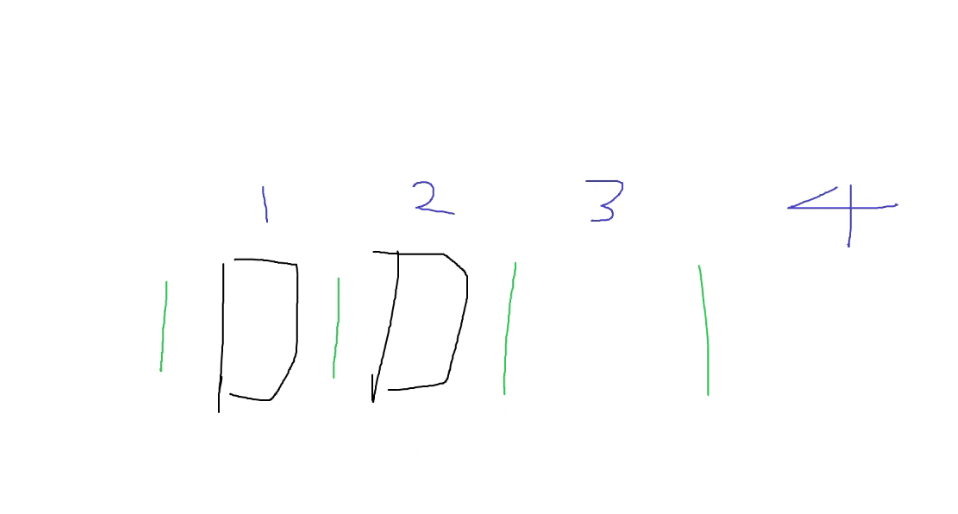 1 2 3 4
| D | D | |